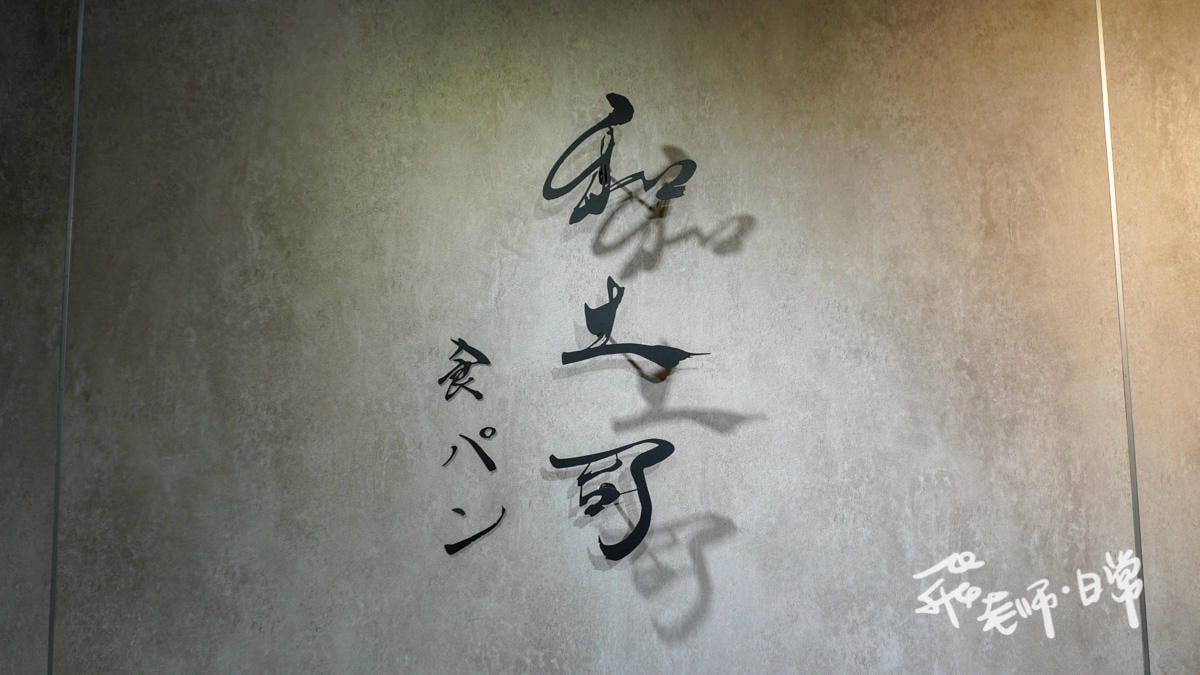 和土司
食パン
飛老师·日常